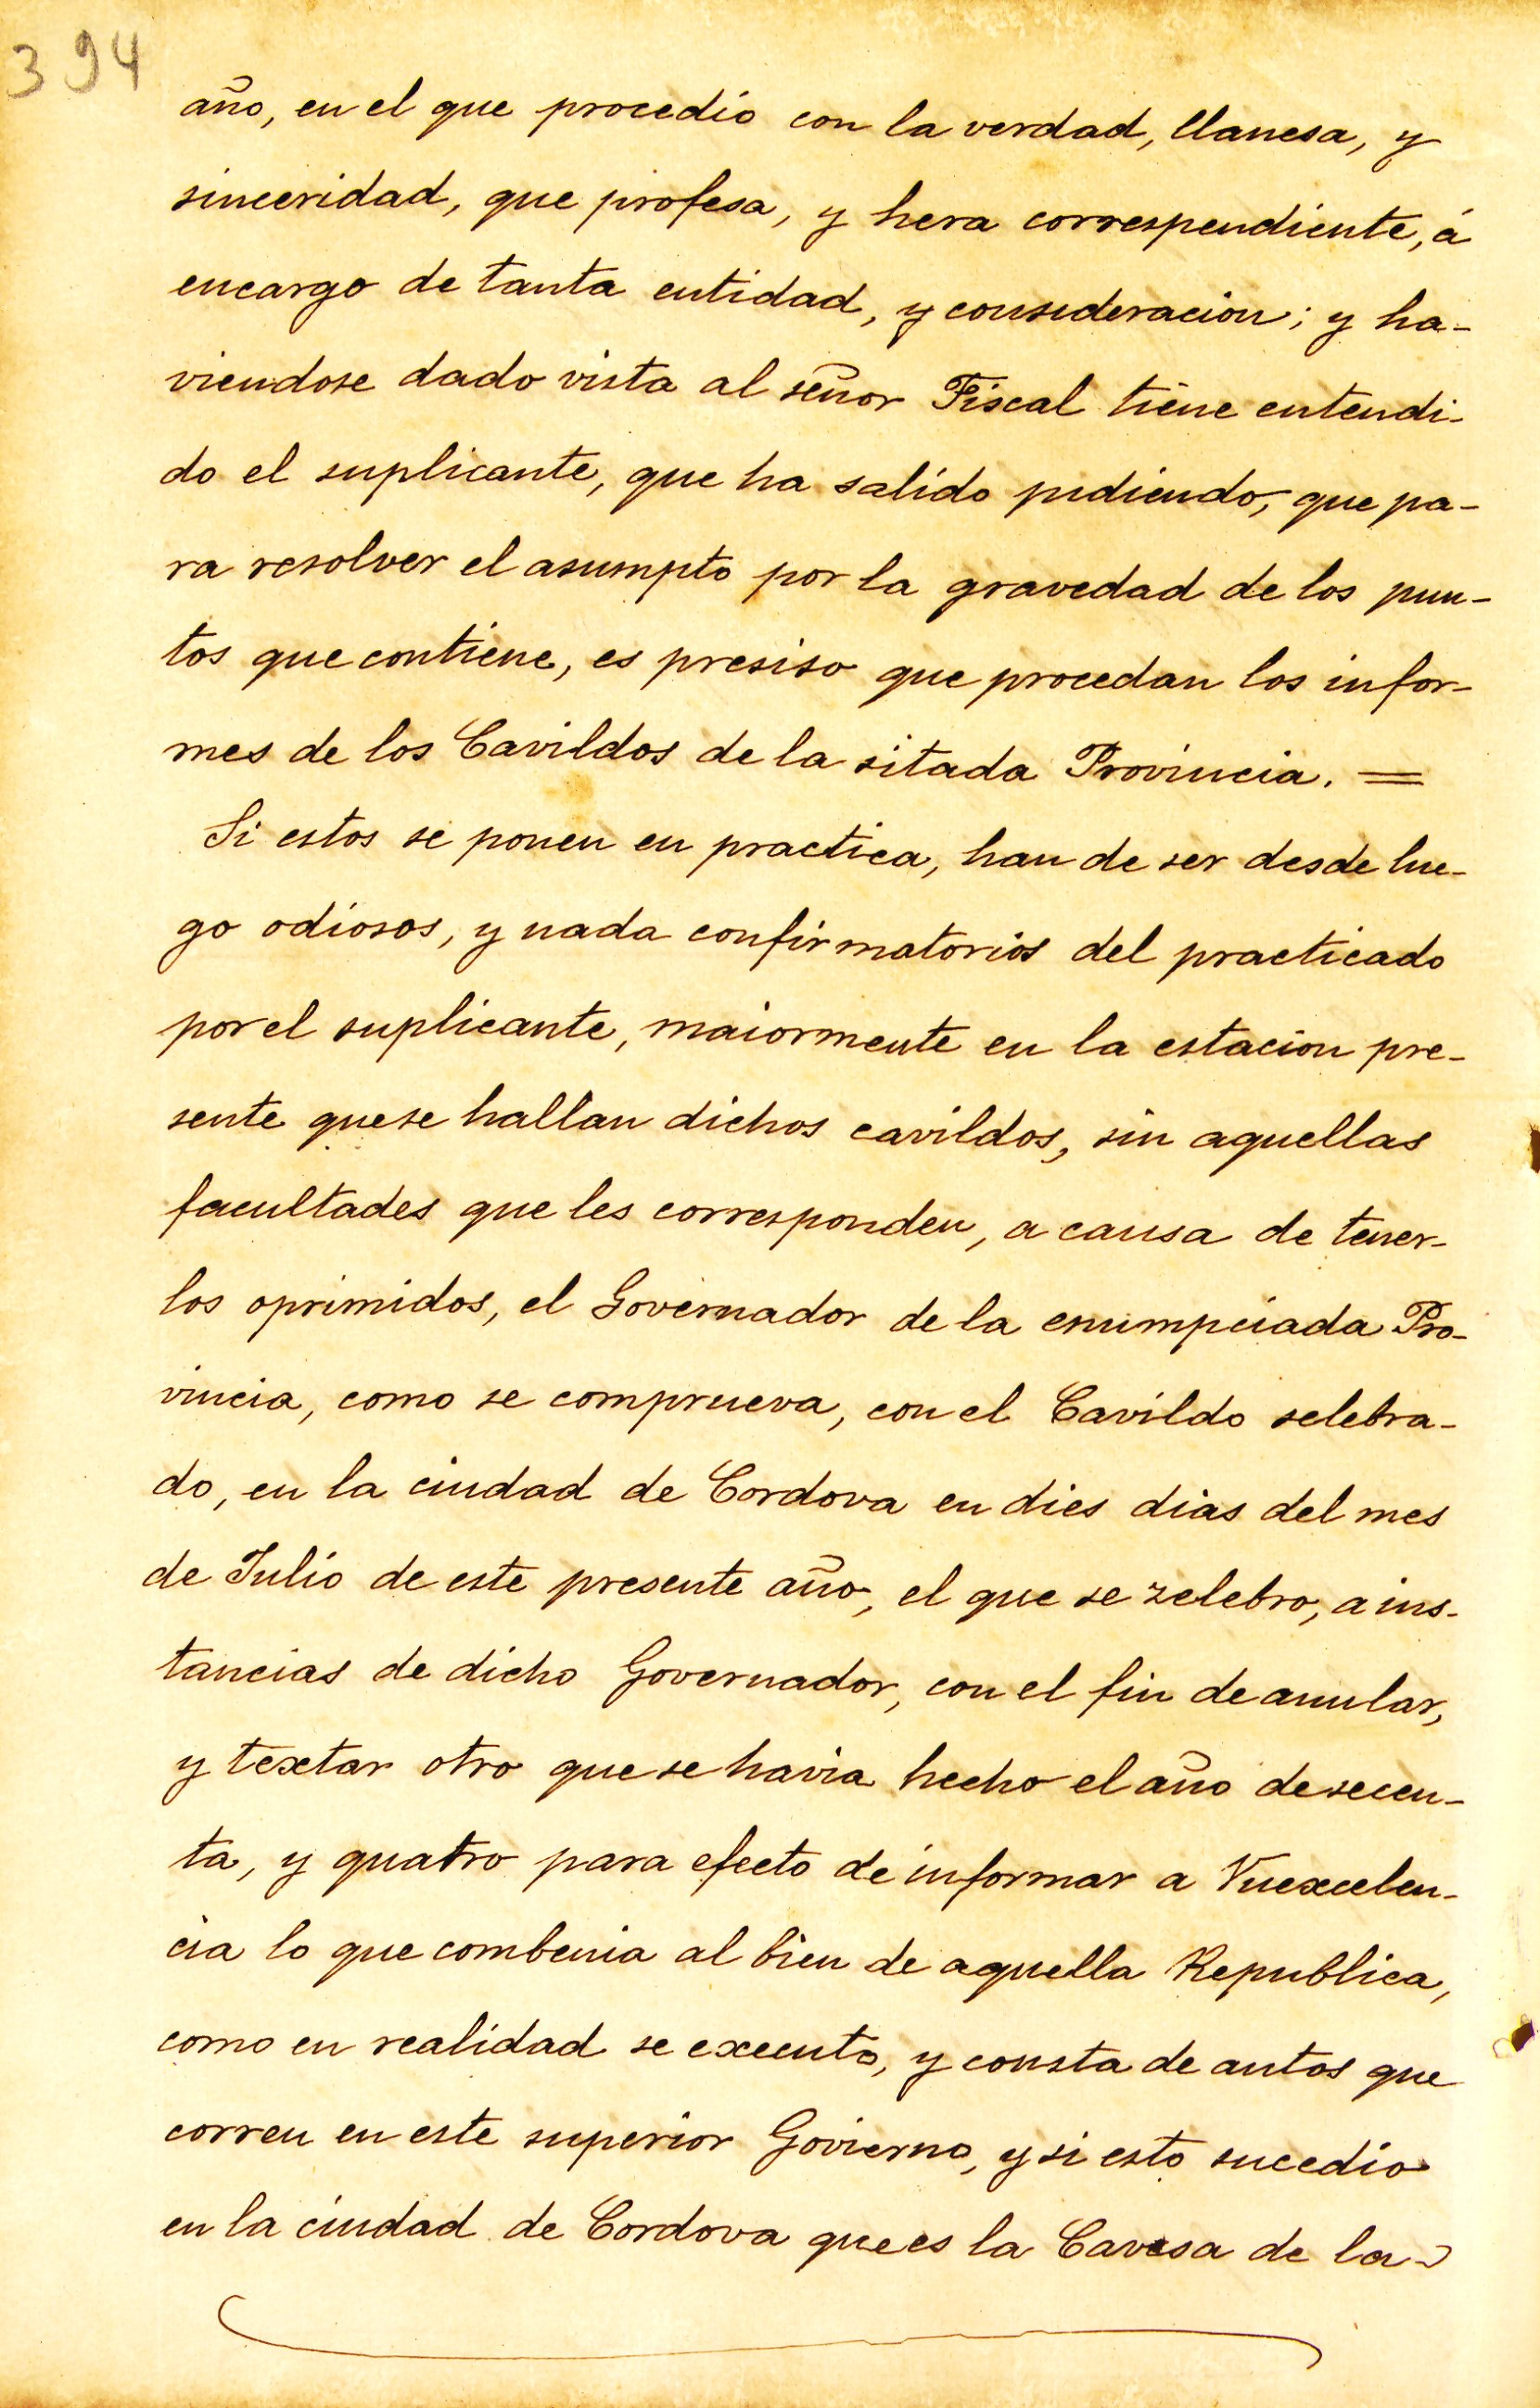 394
año, en el que procedio con la verdad, llanesa, y
sinceridad, que profesa, y hera correspendiente, á
encargo de tanta entidad, y consideracion; y ha-
viendose dado vista al señor Fiscal tiene entendi-
do el suplicante, que ha salido pidiendo, que pa-
ra resolver el asumpto por la gravedad de los pun-
tos que contiene, es presiso que procedan los infor-
mes de los Cavildos de la sitada Provincia. =
Si estos se ponen en practica, han de ser desde lue-
go odiosos, y nada confirmatorios del practicado
por el suplicante, maiormente en la estacion pre-
sente que se hallan dichos cavildos, sin aquellas
facultades que les corresponden, a causa de tener-
los oprimidos, el Governador de la enumpciada Pro-
vincia, como se comprueva, con el Cavildo selebra-
do, en la ciudad de Cordova en dies dias del mes
de Julio de este presente año, el que se zelebro, a ins-
tancias de dicho Governador, con el fin de anular,
y textar otro que se havia hecho el año de secen-
ta, y quatro para efecto de informar a Vuexcelen-
cia lo que combenia al bien de aquella Republica,
como en realidad se executo, y consta de autos que
corren en este superior Govierno, y si esto sucedio
en la ciudad de Cordova que es la Cavesa de la-